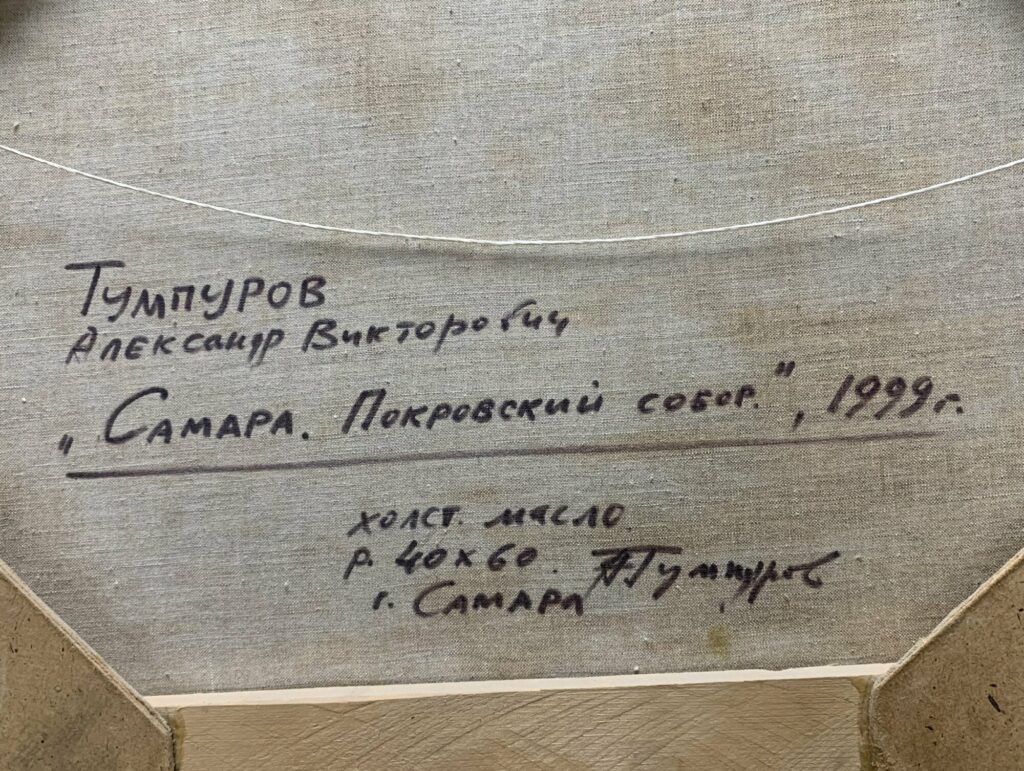 Тумпуров
Александр Викторович
„Самара. Покровский собор.", 1999г.
холст. масло.
р. 40х60. АТумпуров
г. Самара